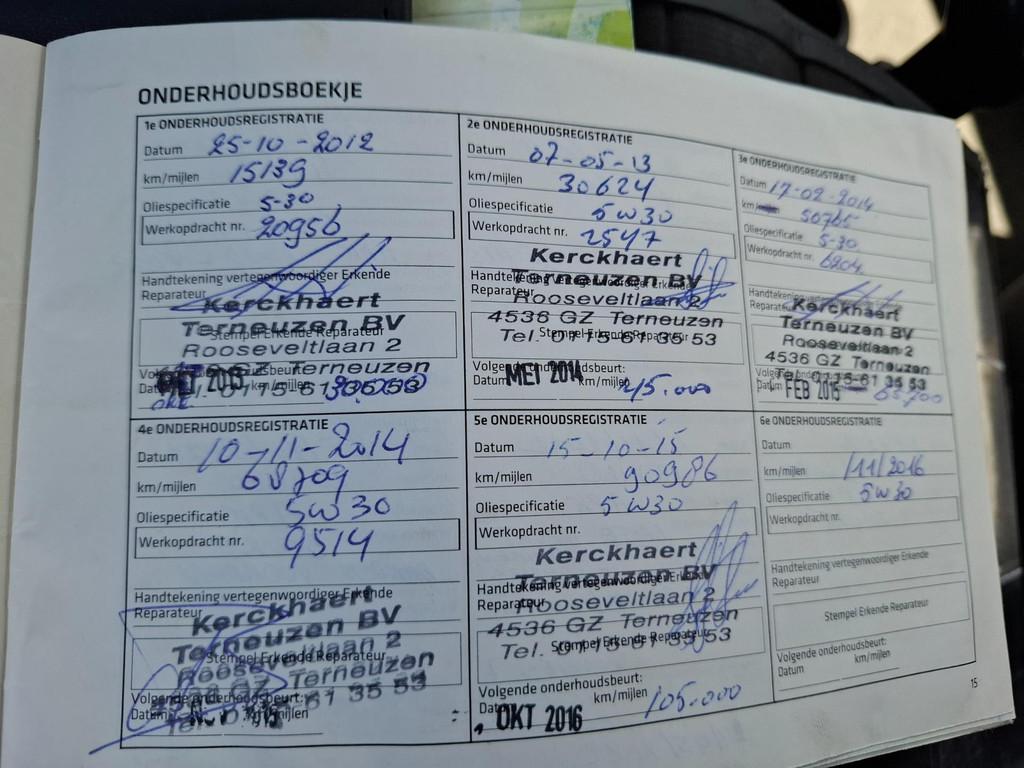 ONDERHOUDSBOEKJE
1e ONDERHOUDSREGISTRATIE
Datum 25-10-2012
km/mijlen 15139
Oliespecificatie 5-30
Werkopdracht nr. 20956
Handtekening vertegenwoordiger Erkende
Reparateur
Kerckhaert
Terneuzen BV
Stempel Erkende Reparateur
Rooseveltlaan 2
Terneuzen
2e ONDERHOUDSREGISTRATIE
Datum 07-05-13
km/mijlen 30624
Oliespecificatie 5w30
Werkopdracht nr. 2547
Kerckhaert
Handtekening vertegenwoordiger Erkende
Terneuzen BV
Reparateur
Rooseveltlaan 2
4536 GZ Terneuzen
Stempel Erkende Reparateur
Tel. 0115-61 35 53
Volgende onderhoudsbeurt:
Datum MEI 2014 km/mijlen 45.000
3e ONDERHOUDSREGISTRATIE
Datum 17-02-2014
km 50765
Oliespecificatie 5-30
Werkopdracht nr. 6204
Handtekening vertegenwoordiger Erkende
Reparateur
Kerckhaert
Terneuzen BV
Rooseveltlaan 2
4536 GZ Terneuzen
Tel. 0115-61 35 53
Datum FEB 2015
4e ONDERHOUDSREGISTRATIE
Datum 10-11-2014
km/mijlen 68709
Oliespecificatie 5w30
Werkopdracht nr. 9514
Handtekening vertegenwoordiger Erkende
Reparateur
Kerckhaert
Terneuzen BV
Stempel Erkende Reparateur
Rooseveltlaan 2
4536 GZ Terneuzen
Volgende onderhoudsbeurt:
Tel. 0115-61 35 53
5e ONDERHOUDSREGISTRATIE
Datum 15-10-15
km/mijlen 90986
Oliespecificatie 5w30
Werkopdracht nr.
Kerckhaert
Handtekening vertegenwoordiger Erkende
Terneuzen BV
Reparateur
Rooseveltlaan 2
4536 GZ Terneuzen
Stempel Erkende Reparateur
Tel. 0115-61 35 53
Volgende onderhoudsbeurt:
Datum OKT 2016 km/mijlen 105.000
6e ONDERHOUDSREGISTRATIE
Datum
km/mijlen /11/2016
Oliespecificatie 5w30
Werkopdracht nr.
Handtekening vertegenwoordiger Erkende
Reparateur
Stempel Erkende Reparateur
Volgende onderhoudsbeurt:
Datum km/mijlen
15